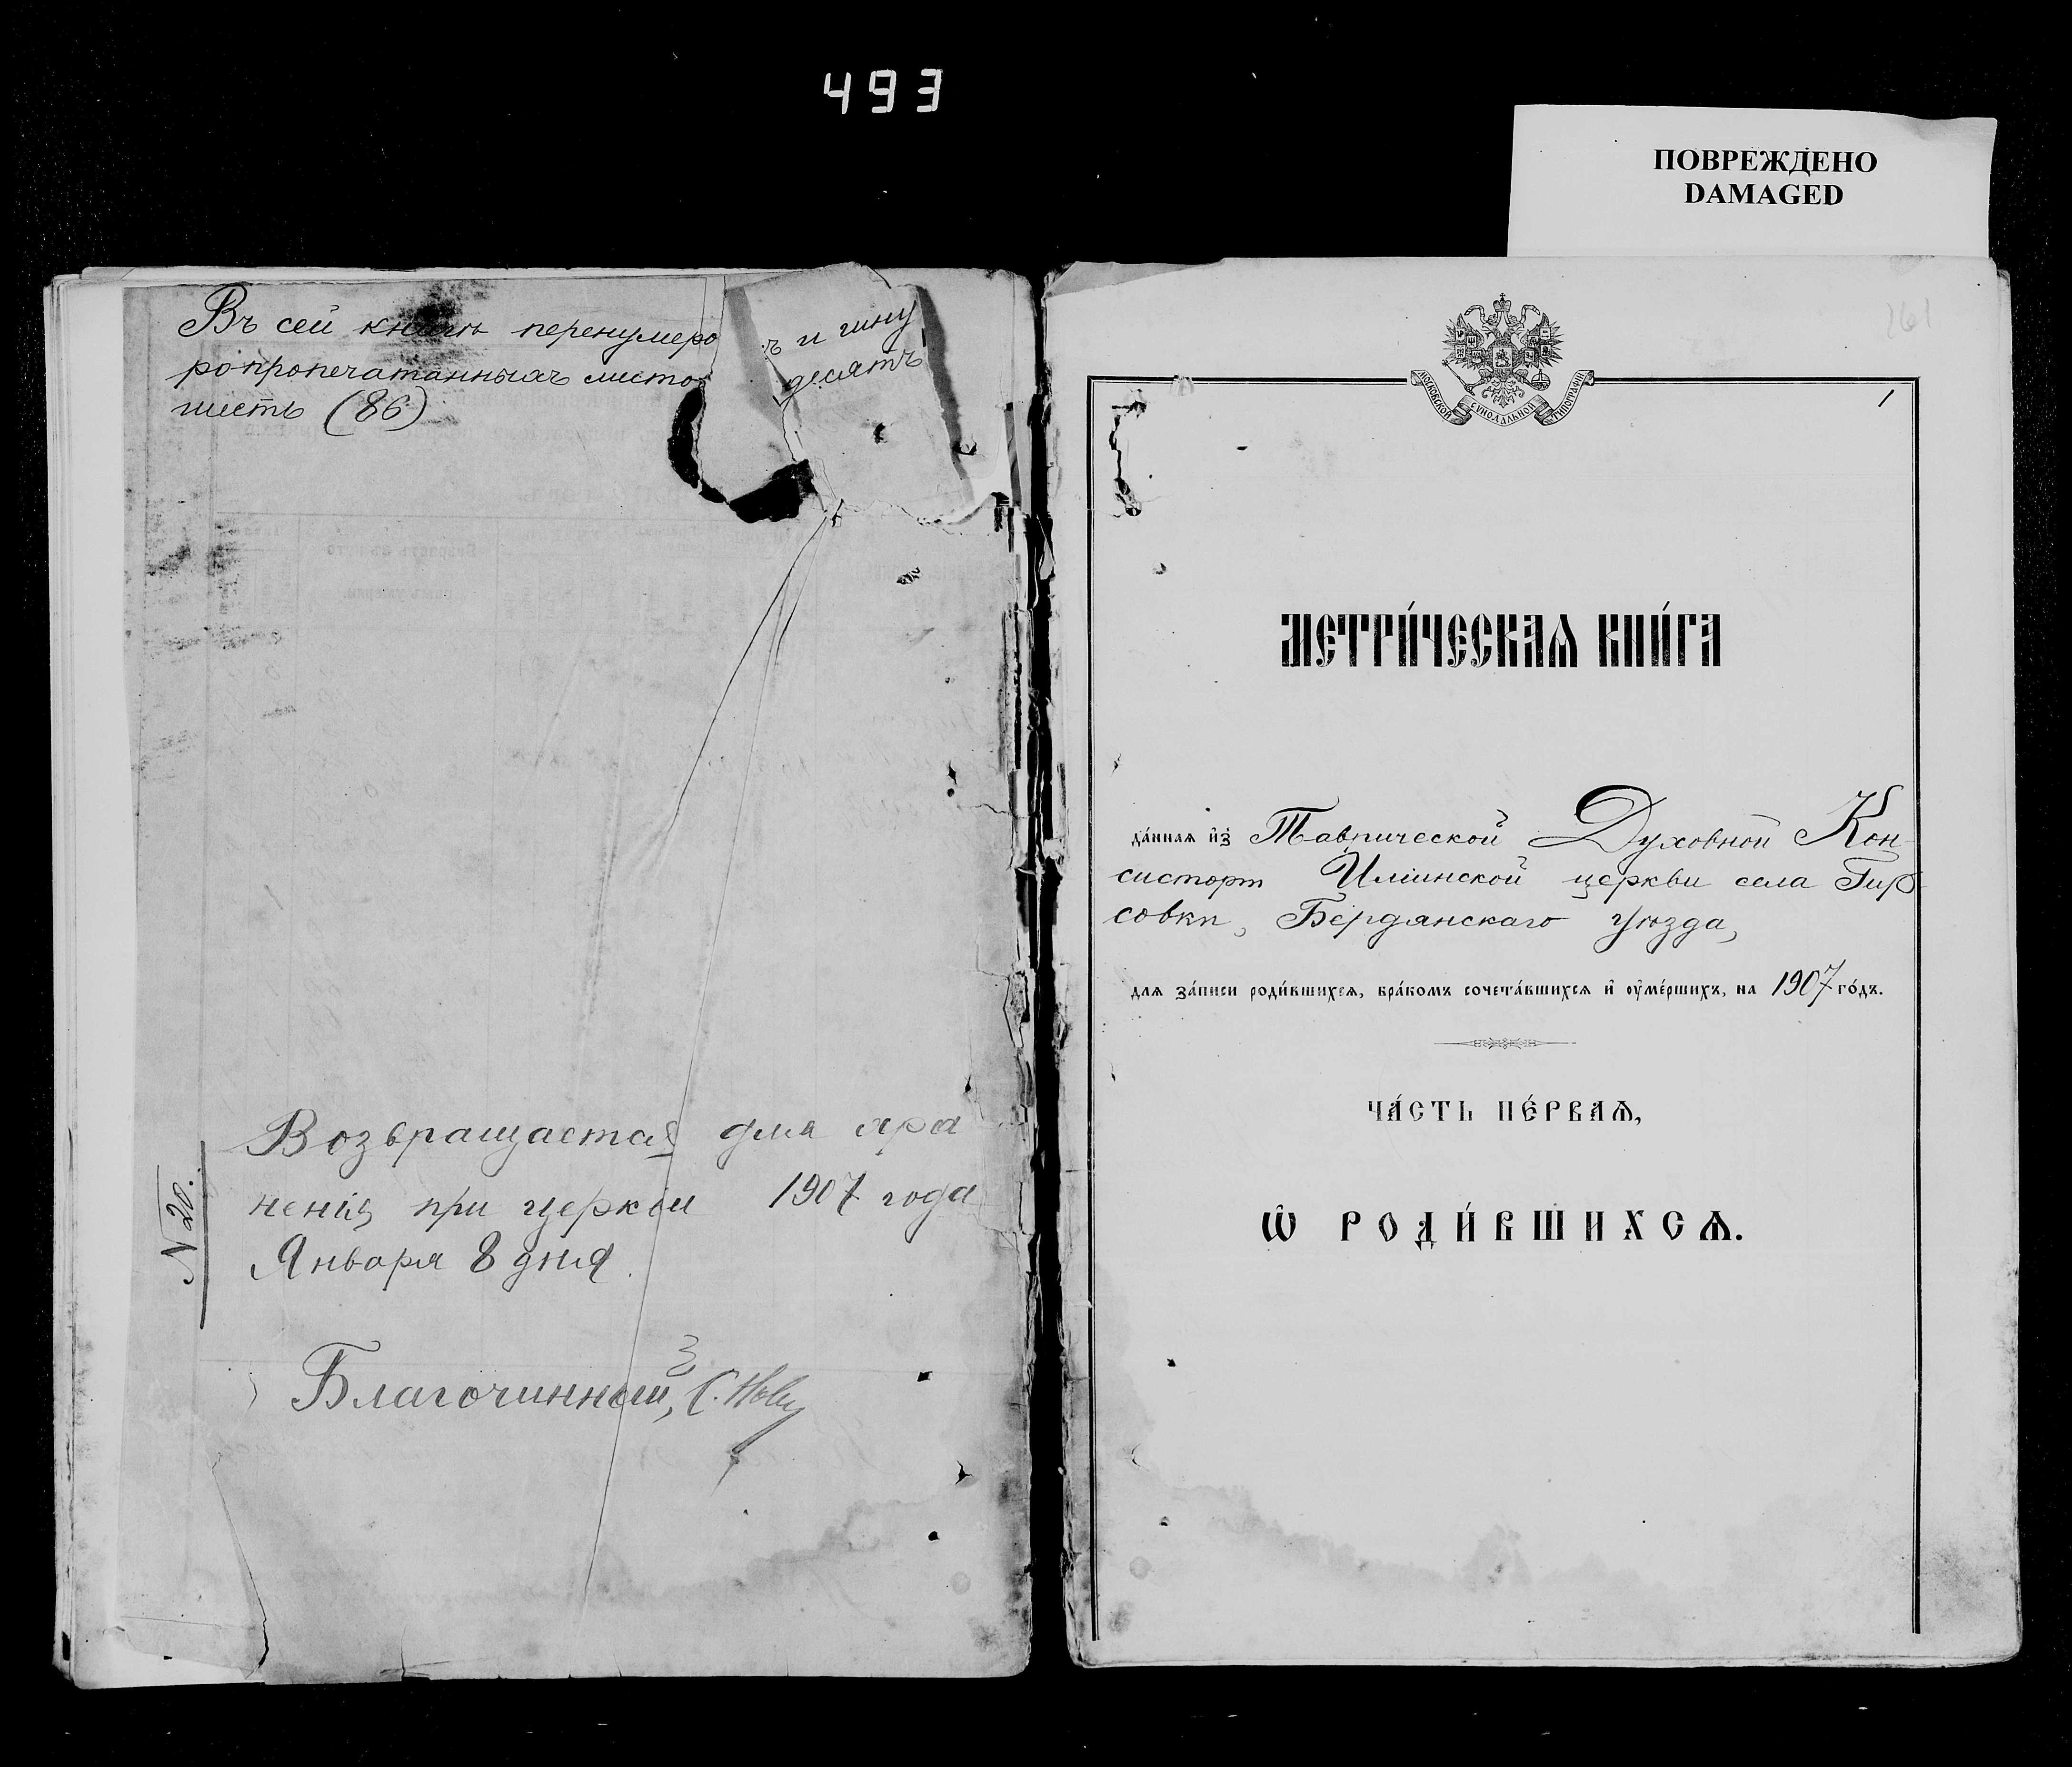 493
ПОВРЕЖДЕНО
DAMAGED
Въ сей книгѣ перенумеро ъ и шну
ропропечатанныхъ листо десятъ
шесть (86)
Возвращается для хра
ненія при церкви 1907 года
Января 8 дня.
N 20.
Благочинный, С.
261
МОСКОВСКОЙ СѴНОДАЛЬНОЙ ТИПОГРАФІИ
1
МЕТРИ́ЧЕСКАѦ КНИ́ГА
да́ннаѧ и҆з̾ Таврической Духовной Кон-
систорі Иліинской церкви села Гир-
совки, Бердянскаго уѣзда,
длѧ за́писи роди́вшихсѧ, бра́комъ сочета́вшихсѧ и҆ ѹ҆ме́ршихъ, на 1907 го́дъ.
ЧА́СТЬ ПЕ́РВАѦ,
Ѡ҆ РОДИ́ВШИХСѦ.